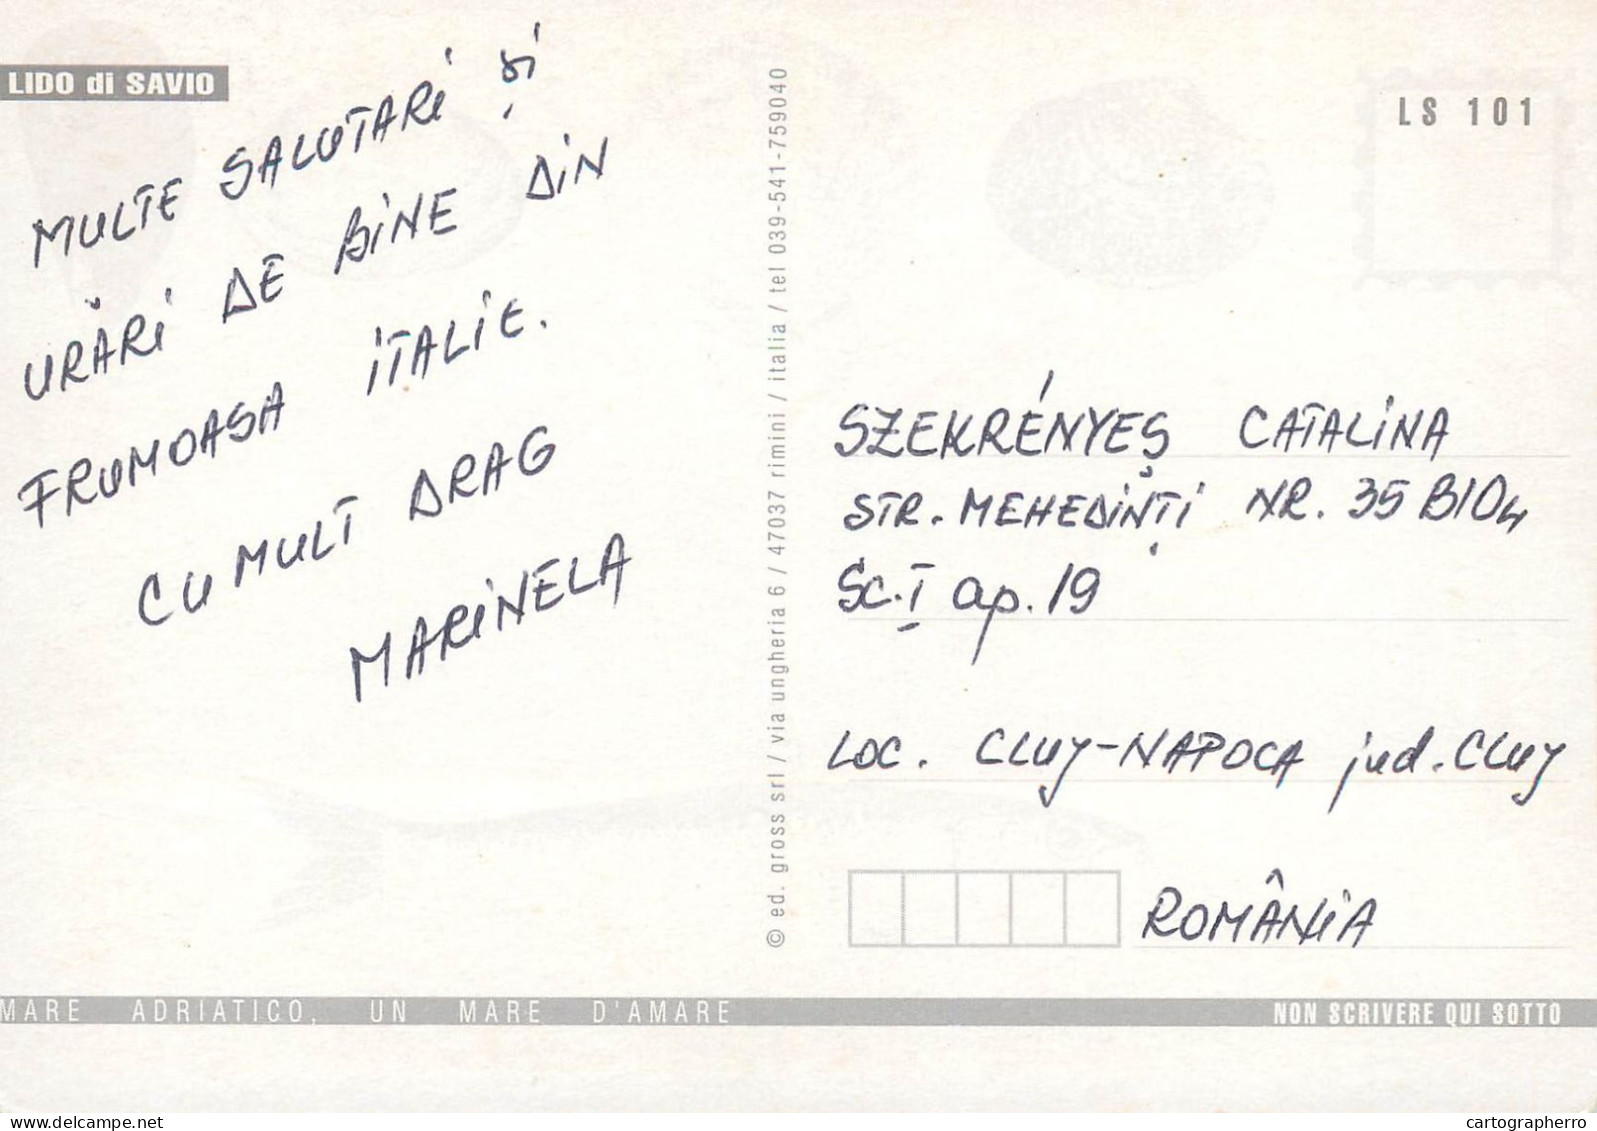 LIDO di SAVIO
MULTE SALUTARI și
URĂRI DE BINE DIN
FRUMOASA ITALIE.
CU MULT DRAG
MARINELA
© ed. gross srl / via ungheria 6 / 47037 rimini / italia / tel 039-541-759040
LS 101
SZEKRÉNYEȘ CATALINA
STR. MEHEDINȚI NR. 35 BlO4
Sc. I ap. 19
LOC. CLUJ-NAPOCA jud. CLUJ
ROMÂNIA
MARE ADRIATICO, UN MARE D'AMARE
NON SCRIVERE QUI SOTTO
cartographerro